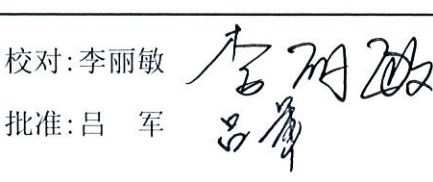 校对:李丽敏 李丽敏
批准:吕 军 吕军